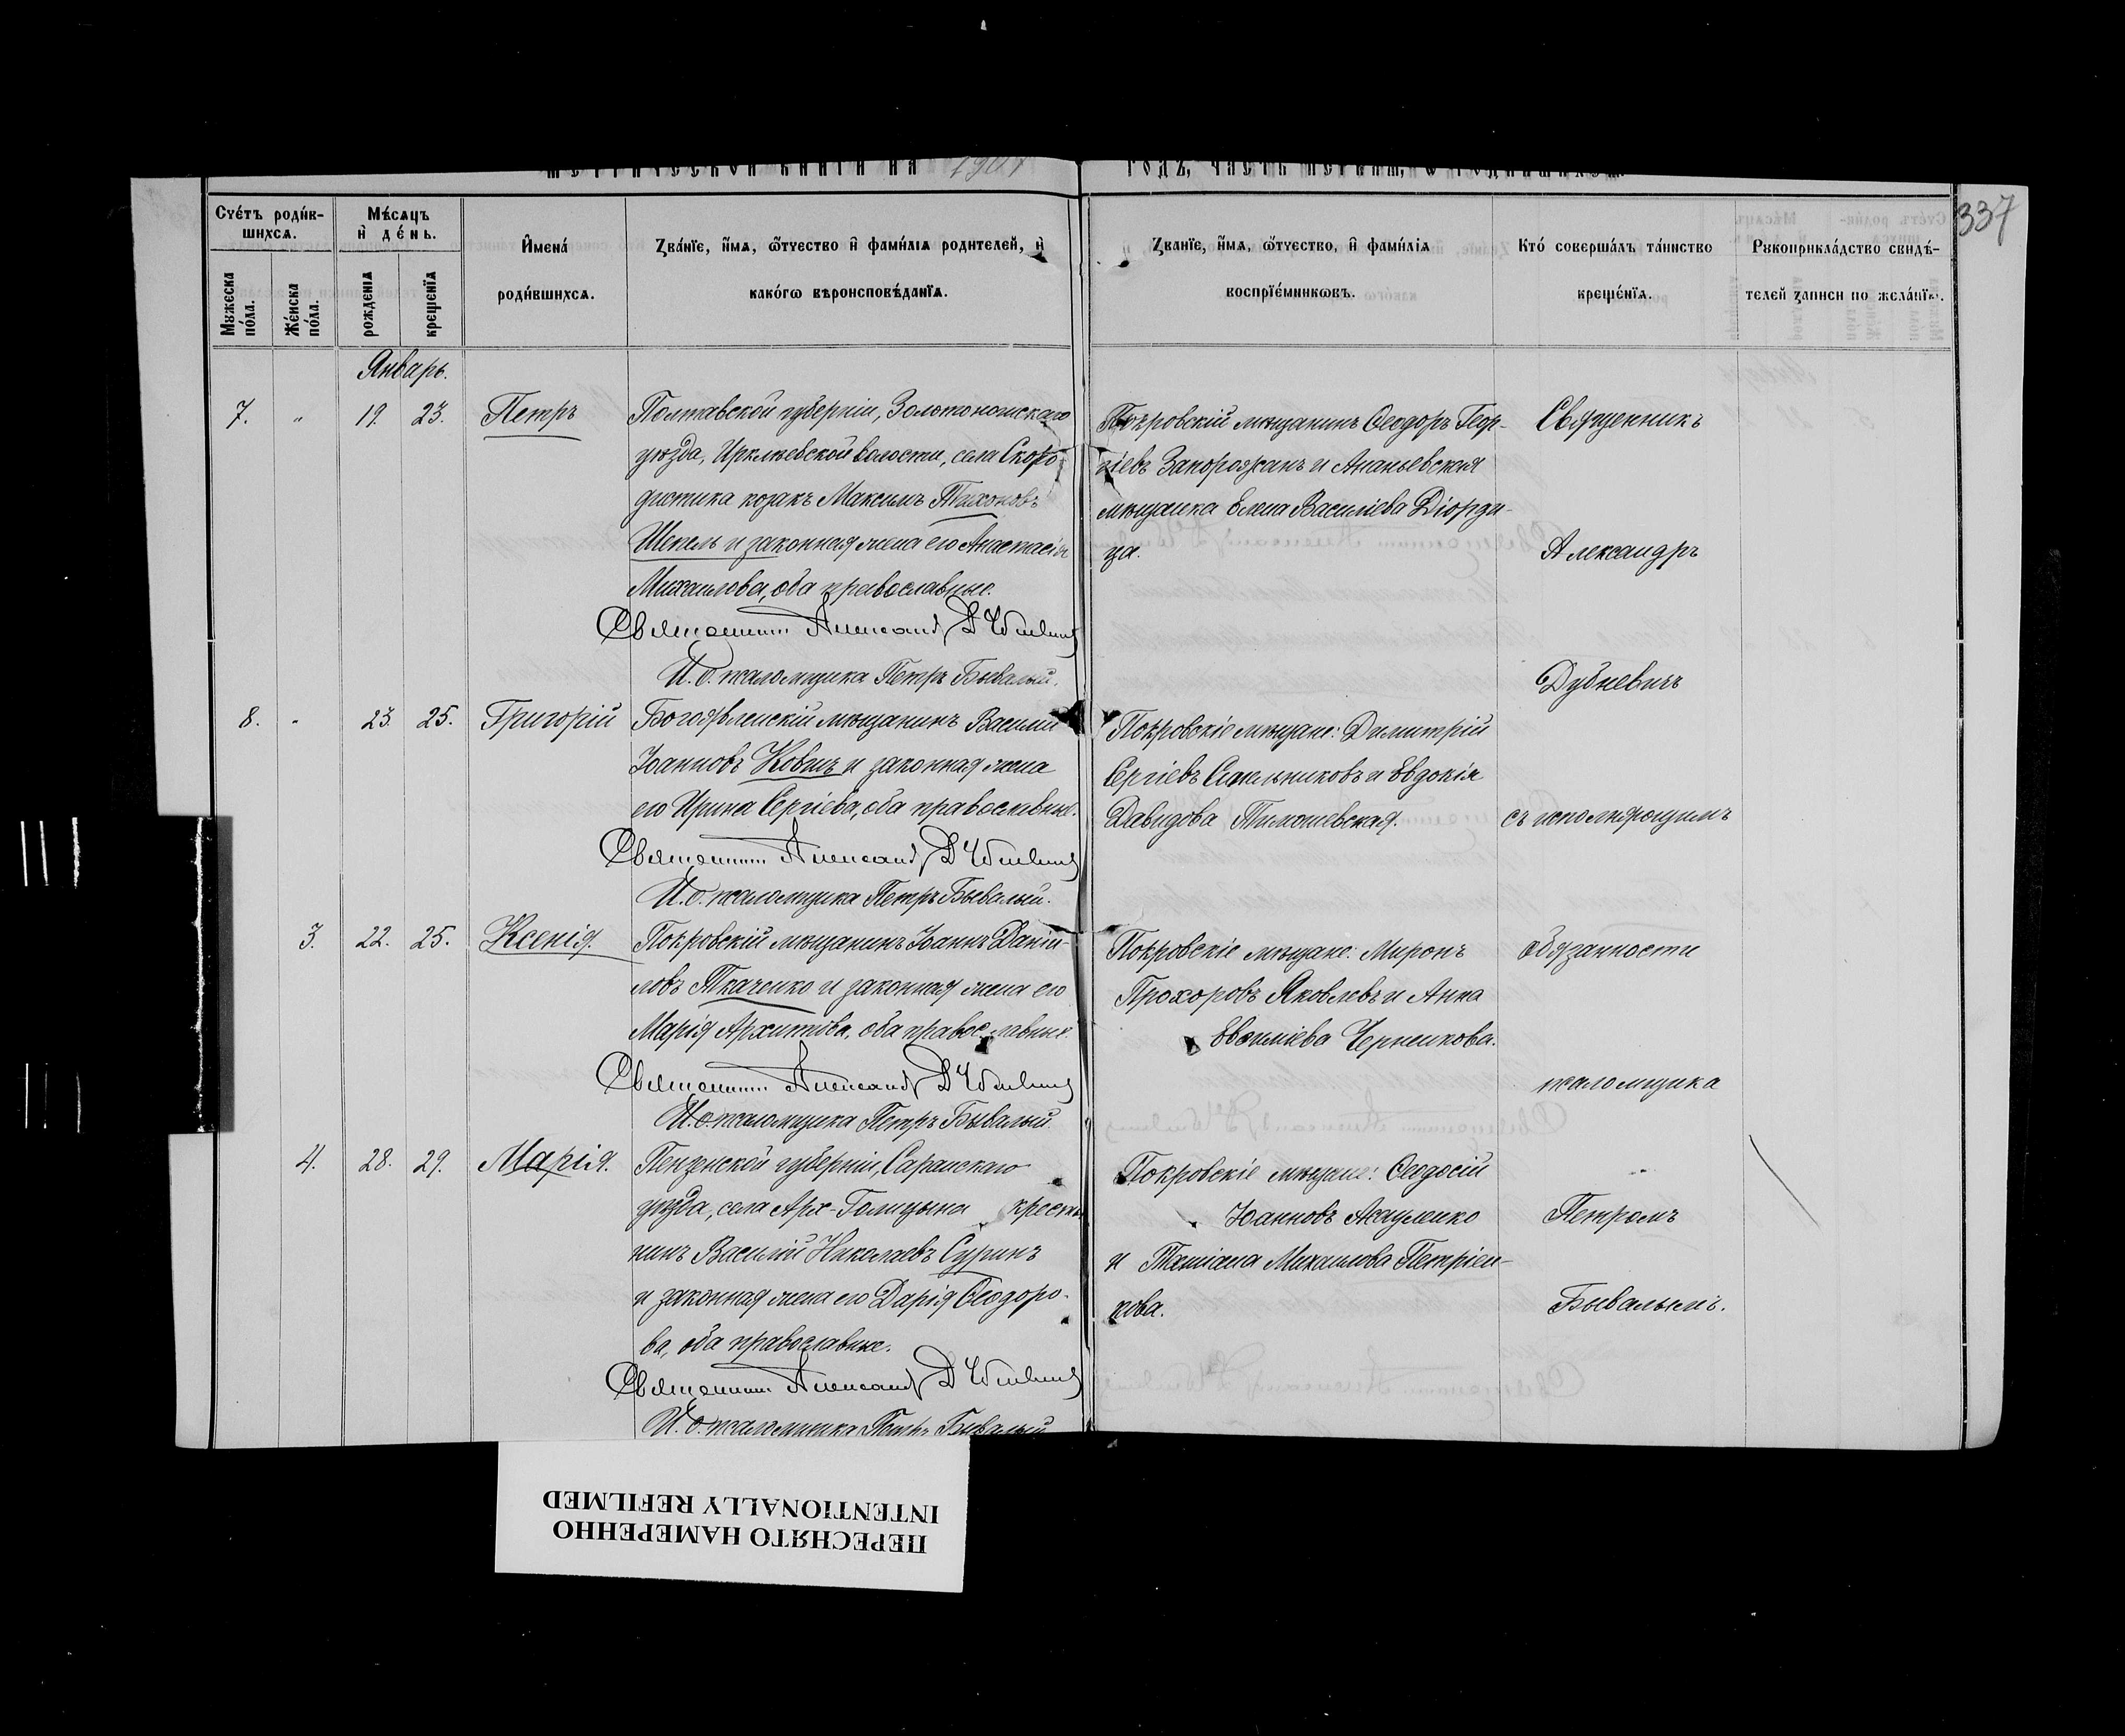 МЕТРИЧЕСКОЙ КНИГИ НА 1901
ГОДЪ, ЧАСТЬ ПЕРВАЯ, Ѡ РОДИВШИХСЯ.
337
Счéтъ роди́вшихсѧ.
Мꙋжеска по́ла.
Же́нска по́ла.
Мѣ́сѧцъ и҆ де́нь.
рожденїѧ
крещенїѧ
И҆мена́ роди́вшихсѧ.
Зва́нїе, и҆́мѧ, ѻ҆́тчество и҆ фами́лїѧ родителей, и҆
како́гѡ вѣроисповѣ́данїѧ.
Званїе, и҆́мѧ, ѻ҆́тчество, и҆ фами́лїѧ
воспрїе́мникѡвъ.
Кто́ соверша́лъ та́инство
креще́нїѧ.
Рꙋкоприкла́дство свидѣ́-
телей записи по жела́нїю.
Январь.
7. " 19. 23. Петръ
Полтавской губерніи, Золотоношскаго
уѣзда, Ирклѣевской волости, села Скоро-
дистика козакъ Максимъ Тихоновъ
Шепель и законная жена его Анастасія
Михаилова, оба православные.
Священникъ Александръ Дубневичъ
И. о. псаломщика Петръ Бывалый.
Покровскій мѣщанинъ Ѳеодоръ Геор-
гіевъ Запорожанъ и Ананьевская
мѣщанка Елена Василіева Діорди-
ца.
8. " 23. 25. Григорій
Богоявленскій мѣщанинъ Василій
Іоанновъ Ковичъ и законная жена
его Ирина Сергіева, оба православные.
Священникъ Александръ Дубневичъ
И. о. псаломщика Петръ Бывалый.
Покровскіе мѣщане: Димитрій
Сергіевъ и Евдокія
Давидова Тимошевская.
3. 22. 25. Ксенія.
Покровскій мѣщанинъ Іоаннъ Даніи-
ловъ Ткаченко и законная жена его
Марія Архипова, оба православные.
Священникъ Александръ Дубневичъ
И. о. псаломщика Петръ Бывалый.
Покровскіе мѣщане: Миронъ
Прохоровъ Яковлевъ и Анна
Черненкова.
4. 28. 29. Марія.
Пензенской губерніи, Саранскаго
уѣзда, села Арх-Голицына крестья
нинъ Василій Николаевъ Суринъ
и законная жена его Дарія Ѳеодоро-
ва, оба православные.
Священникъ Александръ Дубневичъ
И. о. псаломщика Петръ Бывалый
Покровскіе мѣщане: Ѳеодосій
Іоанновъ Асауленко
и Татіана Михаилова Петріен-
кова.
Священникъ
Александръ
Дубневичъ
съ исполняющимъ
обязанности
псаломщика
Петромъ
Бывалымъ.
ПЕРЕСНЯТО НАМЕРЕННО
INTENTIONALLY REFILMED